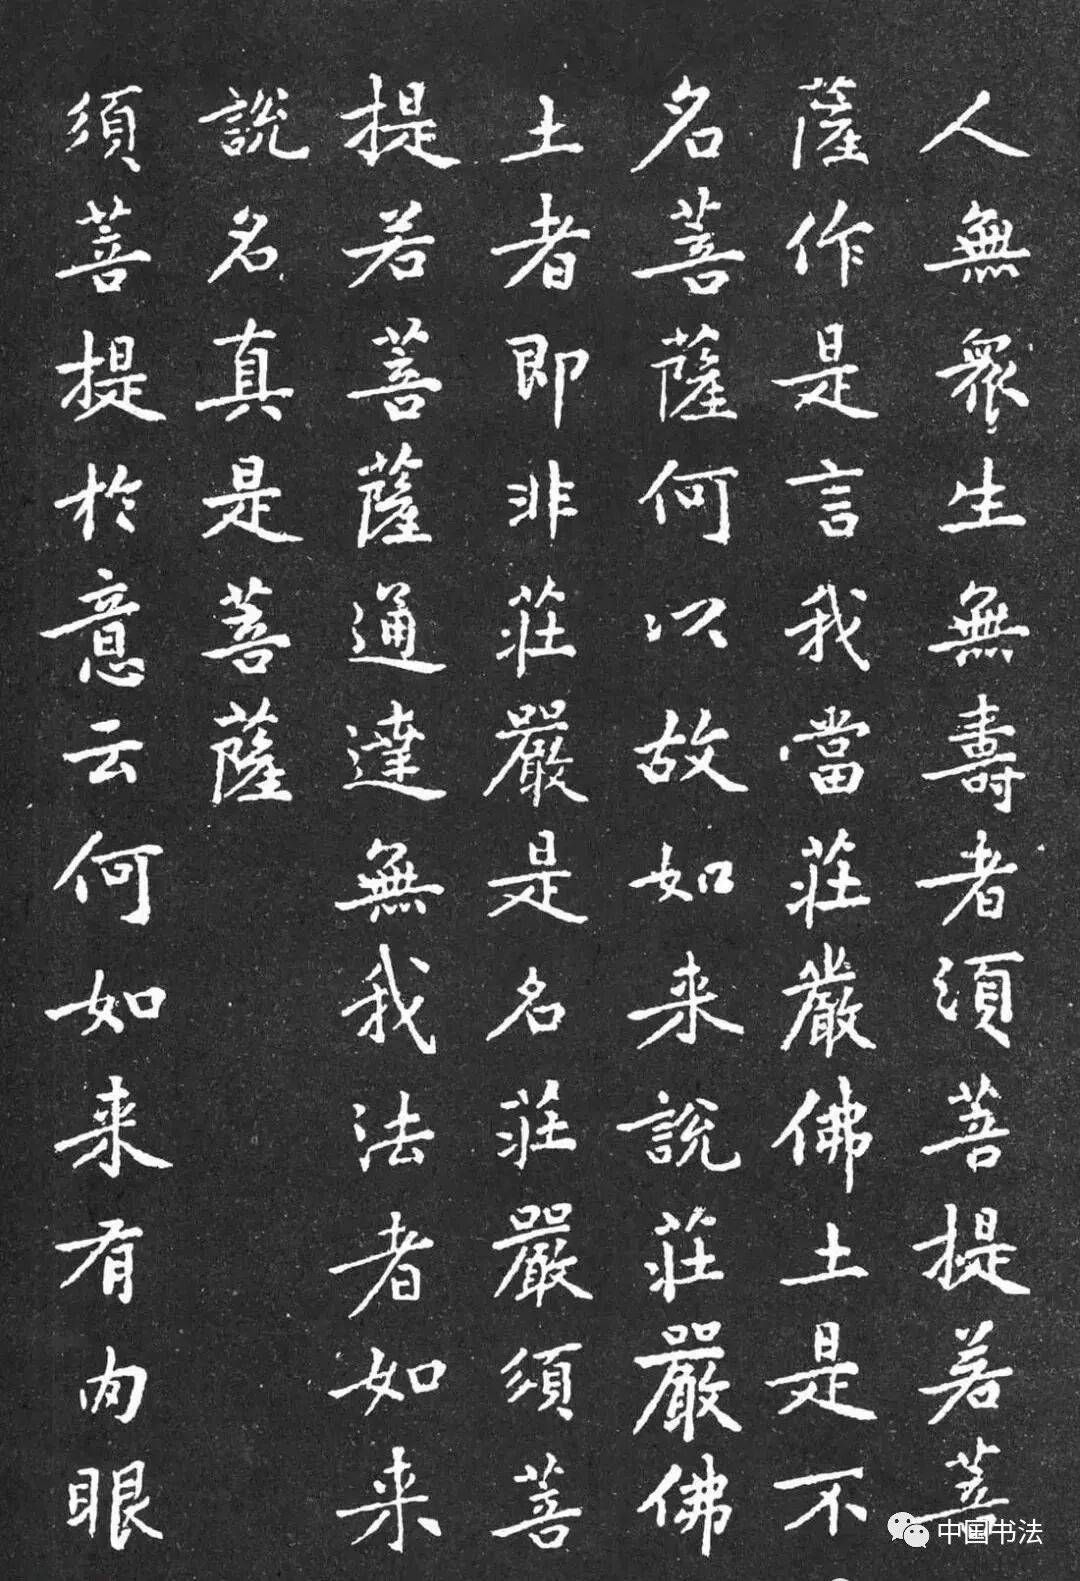 人無眾生無壽者須菩提若菩
薩作是言我當莊嚴佛土是不
名菩薩何以故如来說莊嚴佛
土者即非莊嚴是名莊嚴須菩
提若菩薩通達無我法者如来
說名真是菩薩
須菩提於意云何如来有肉眼
中国书法